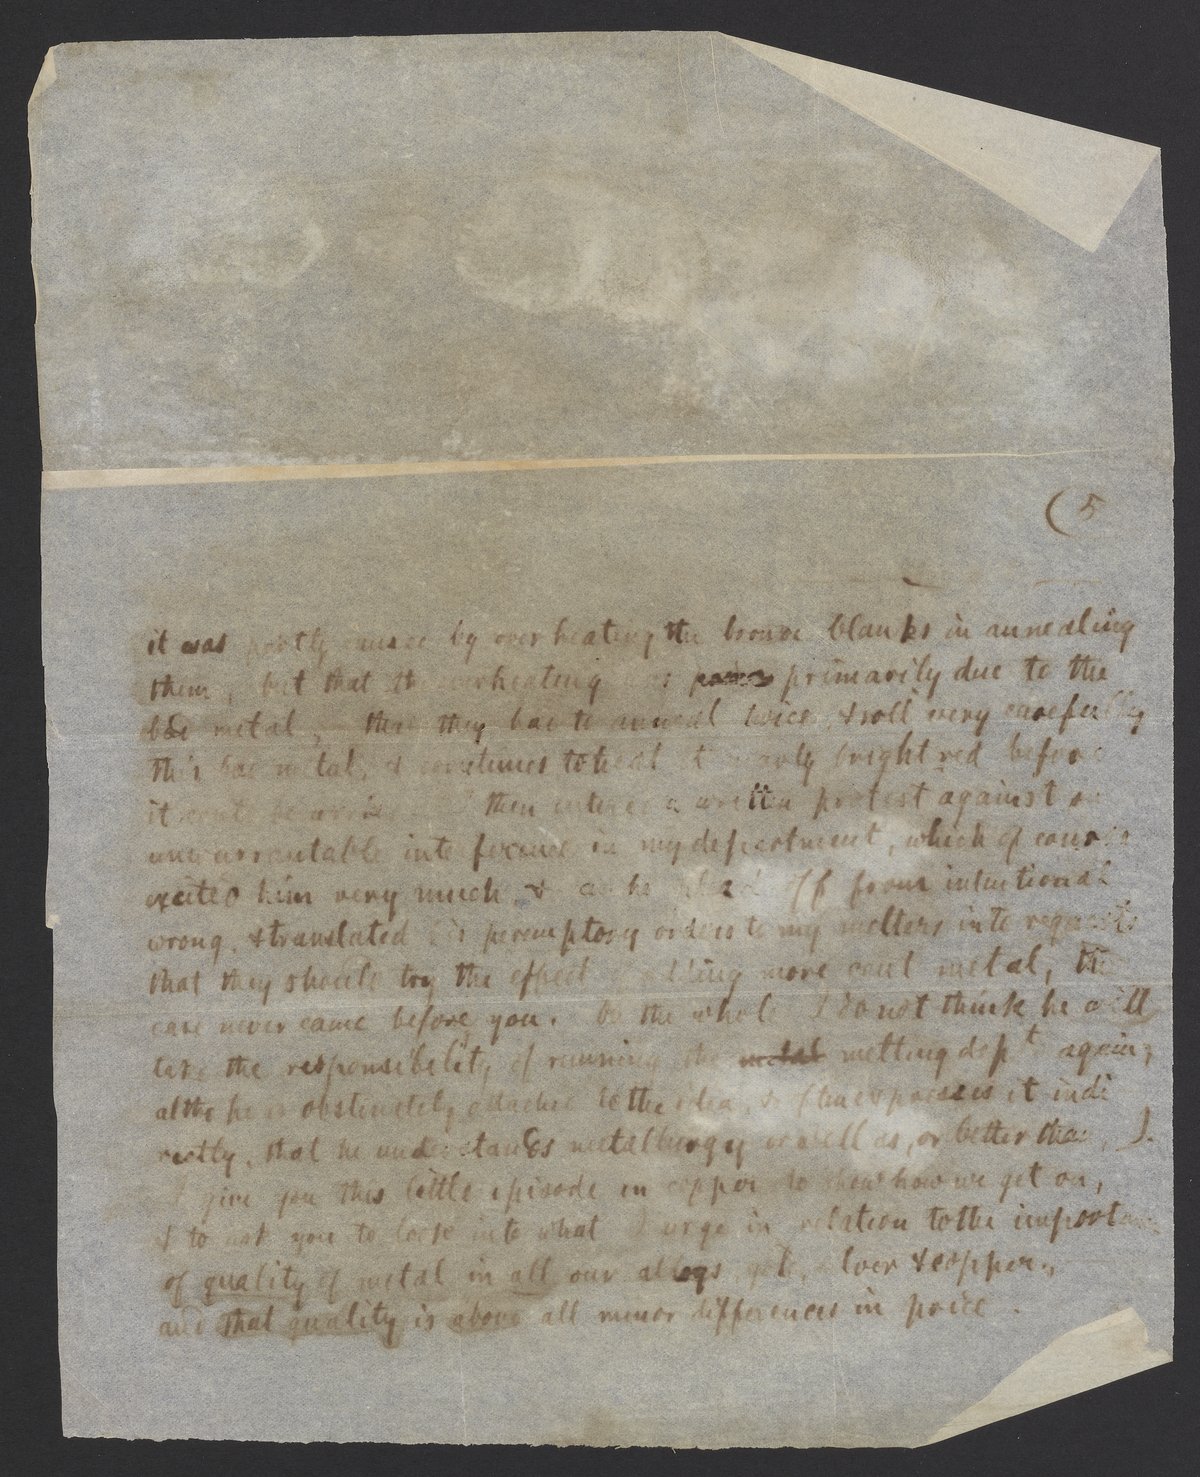 (5
it was partly caused by overheating the bronze blanks in annealing
them, but that the overheating was primarily due to the
bad metal, that they had to anneal twice, & roll very carefully
this bad metal, & sometimes to heat it nearly bright red before
it could be I then entered a written protest against an
unwarrantable interference in my department, which of course
excited him very much, & as he off from intentional
wrong, & translated his peremptory orders to my melters into requests
that they should try the effect of adding more cent metal, the
case never came before you. On the whole I do not think he will
take the responsibility of running the metal melting dept again,
altho he is obstinately attached to the idea, & often expresses it indi
rectly, that he understands metallurgy as well as, or better than, I.
I give you this little episode in copper to show how we get on,
& to ask you to look into what I urge in relation to the importance
of quality of metal in all our alloys, gold, silver & copper,
and that quality is above all minor differences in price.